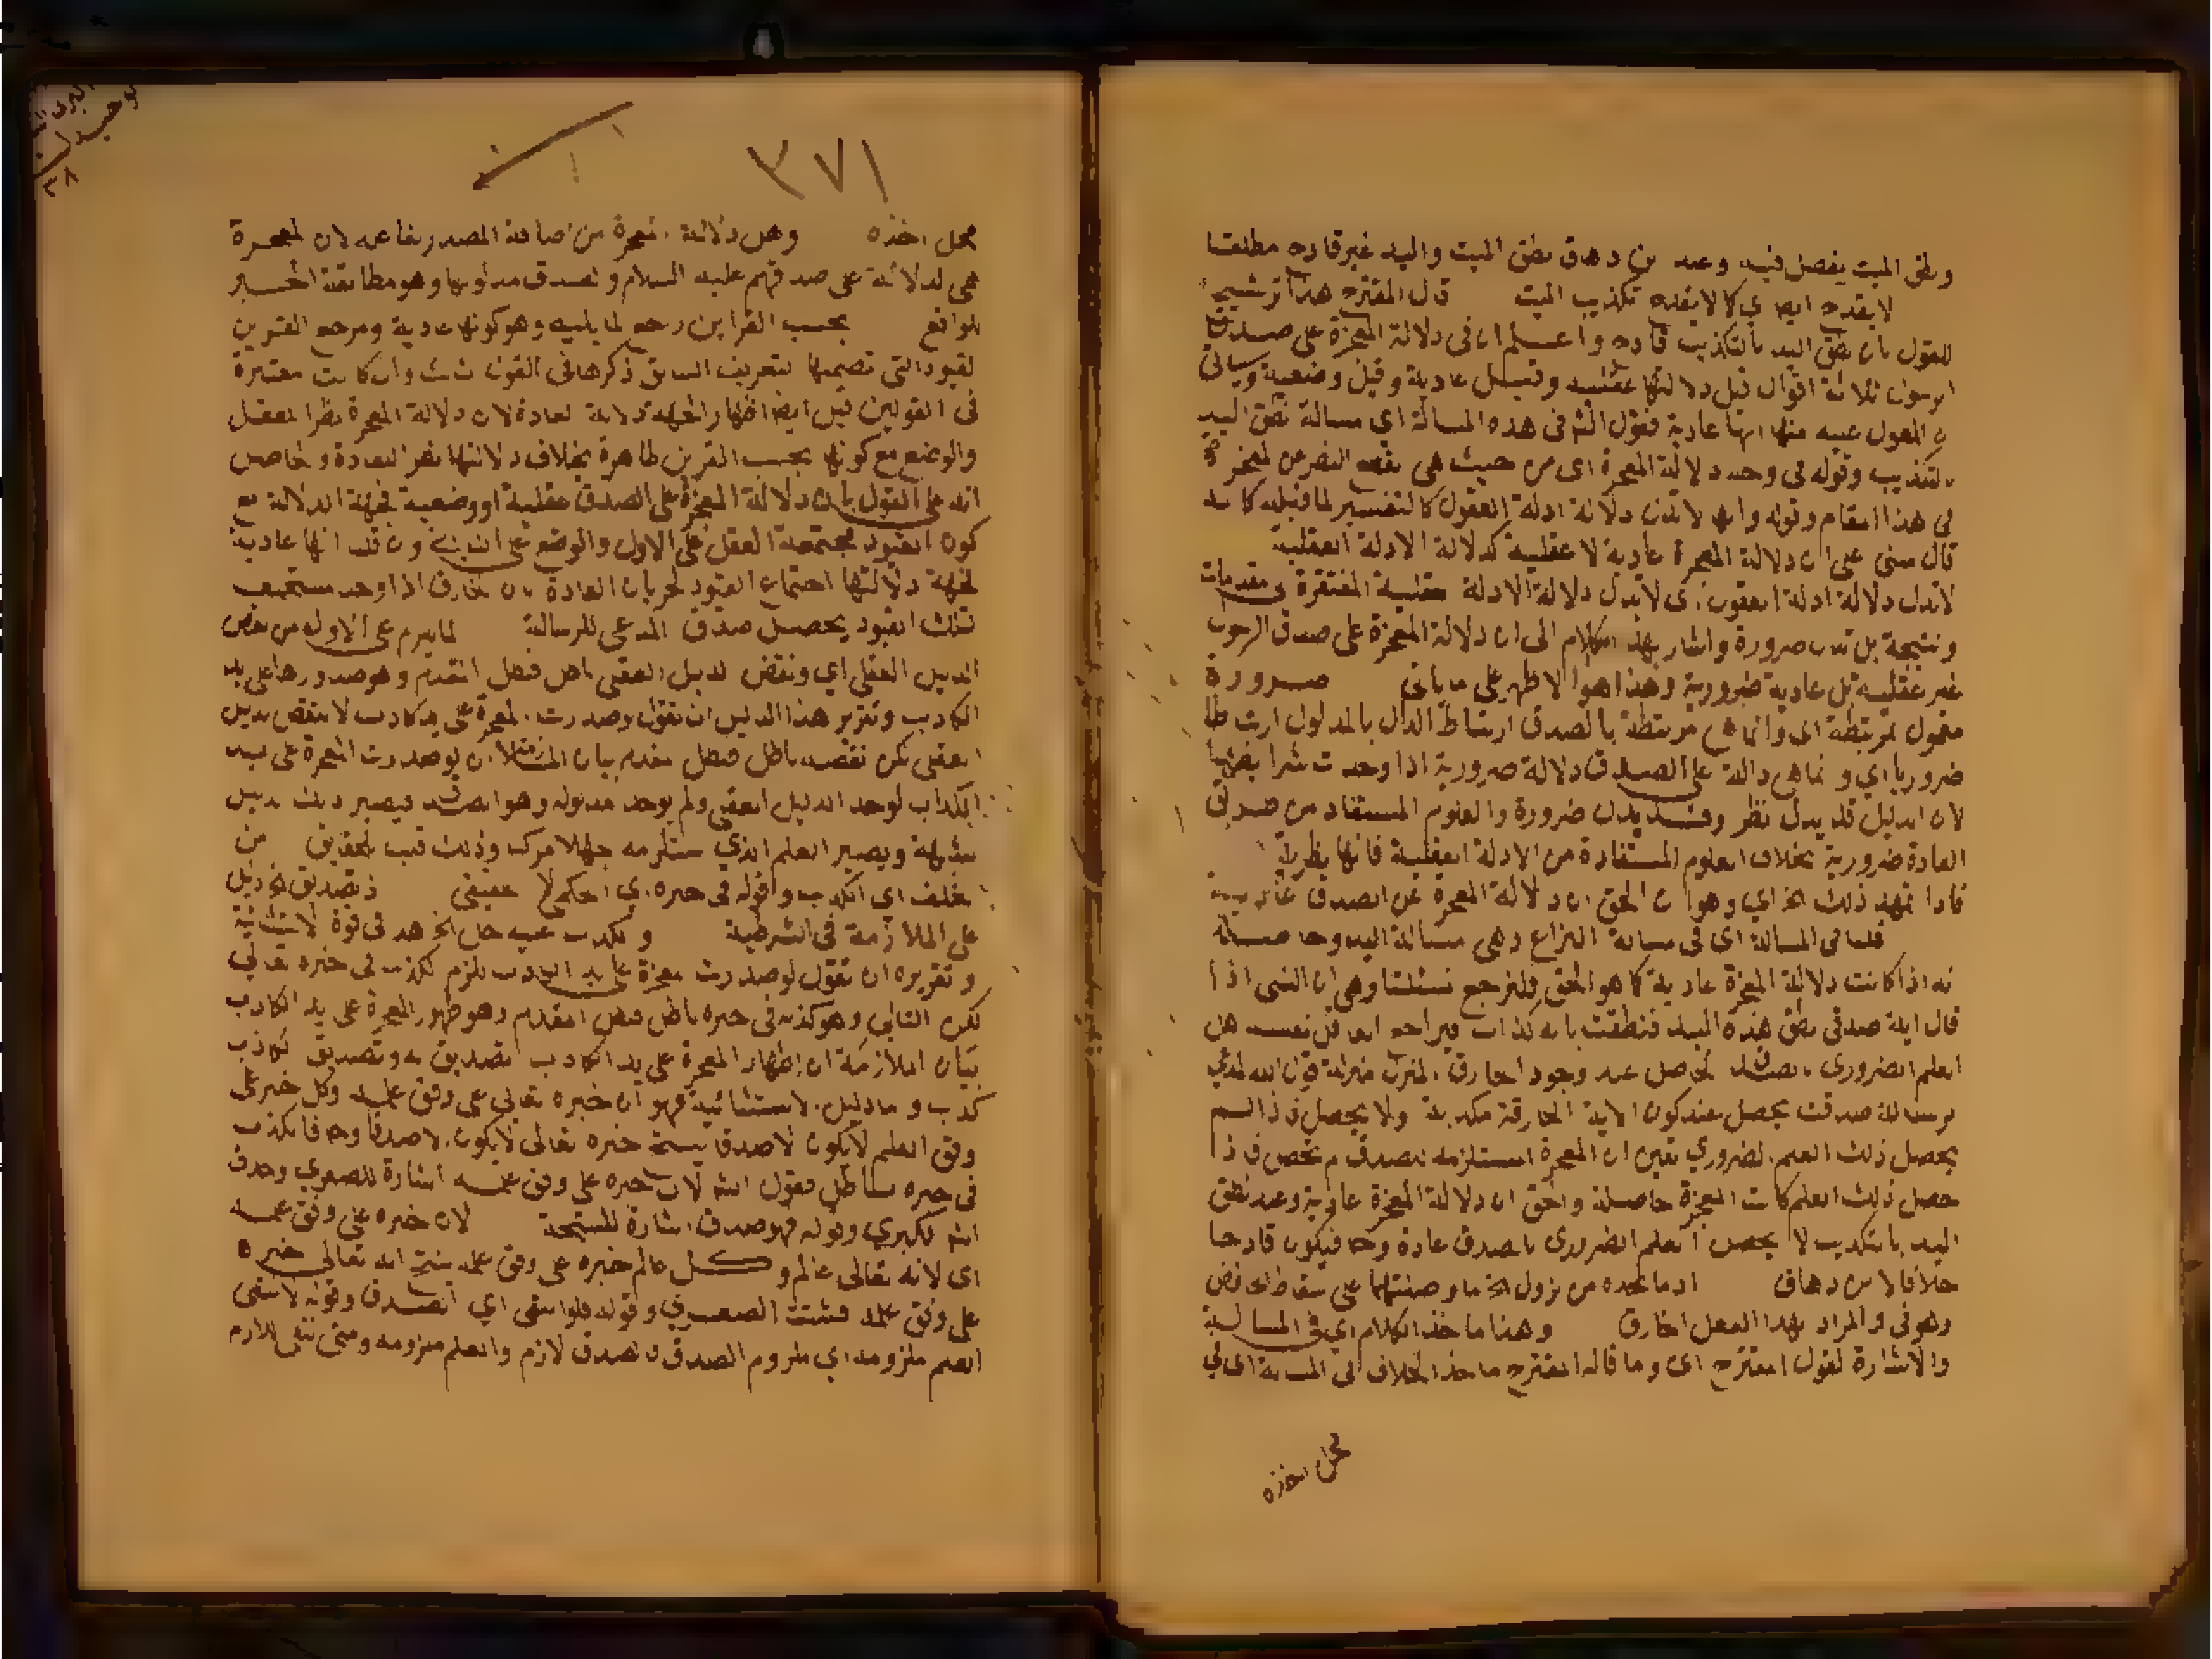 ونطق الميت يفصل فيه وعند ابن دهاق نطق الميت واليد غير قادح مطلقا
لا يقدح ايضا اي كما لا يقدح تكذيب الميت قال المقترح هذا ترشيح
للقول بان نطق اليد بالتكذيب قادح واعلم ان في دلالة المعجزة على صدق
الرسول ثلاثة اقوال قيل دلالتها عقلية وقيل عادية وقيل وضعية وسياتي
ان المعول عليه منها انها عادية فقول الش في هذه المسالة اي مسالة نطق اليد
بالتكذيب وقوله في وجه دلالة المعجزة اي من حيث هي بقطع النظر عن المعجزة
في هذا المقام وقوله وانها لا تدل دلالة ادلة العقول كالتفسير لما قبله كانه
قال مبنى على ان دلالة المعجزة عادية لا عقلية كدلالة الادلة العقلية
لا تدل دلالة ادلة العقول اي لا تدل دلالة الادلة العقلية المفتقرة الى مقدمات
ونتيجة بل تدل ضرورة واشار بهذا الكلام الى ان دلالة المعجزة على صدق الرسول
غير عقلية بل عادية ضرورية وهذا هو الاظهر على ما ياتي ضرورة
معمول لمرتبطة اي وانما هي مرتبطة بالصدق ارتباط الدال بالمدلول ارتباطا
ضروريا اي وانما هي دالة على الصدق دلالة ضرورية اذا وجدت شرائطها
لان الدليل قد يدل نظرا وقد يدل ضرورة والعلوم المستفاد من صدق
العادة ضرورية بخلاف العلوم المستفادة من الادلة العقلية فانها نظرية
فاذا تمهد ذلك الخ اي وهو ان الحق ان دلالة المعجزة عن الصدق عادية
قلنا في المسالة اي في مسالة النزاع وهي مسالة اليد وحاصله
انه اذا كانت دلالة المعجزة عادية كما هو الحق فلنرجع لمسئلتنا وهي ان النبي اذا
قال اية صدقي نطق هذه اليد فنطقت بانه كذاب فيراجع العاقل نفسه هل
العلم الضروري بصدقه الحاصل عند وجود الخارق المنزل منزلة قول الله لمدعي
الرسالة صدقت يحصل عند كون الاية الخارقة مكذبة ولا يحصل فاذا لم
يحصل ذلك العلم الضروري تعين ان المعجزة المستلزمة للصدق لم تحصل فاذا
حصل ذلك العلم كانت المعجزة حاصلة والحق ان دلالة المعجزة عادية وعند نطق
اليد بالتكذيب لا يحصل العلم الضروري بالصدق عادة وح فيكون قادحا
خلافا لابن دهاق اذ ما تحده من نزول الخ ما وصلتها على سقاط الخافض
وهو في والمراد بهذا الفعل الخارق وهنا ماخذ الكلام اي في المسالة
والاشارة لقول المقترح اي وما قاله المقترح ماخذ الخلاف في المسالة اي في
محل اخذه
٣٧١
محل اخذه وهل دلالة المعجزة من اضافة المصدر لفاعله لان المعجزة
هي الدالة على صدقهم عليه السلام والصدق مدلولها وهو مطابقة الخبر
للواقع بحسب القراين راجع لما يليه وهو كونها عادية ومرجع القراين
القيود التي تضمنها التعريف السابق ذكرها في القول الثالث وان كانت معتبرة
في القولين قبل ايضا اظهار الجهة دلالة العادة لان دلالة المعجزة نظرا للعقل
والوضع مع كونها بحسب القراين ظاهرة بخلاف دلالتها نظرا للعادة والحاصل
انه على القول بان دلالة المعجزة على الصدق عقلية او وضعية فجهة الدلالة مع
كون القيود مجتمعة العقل على الاول والوضع على الثاني وان قلنا انها عادية
فجهة دلالتها اجتماع القيود لجريان العادة بان الخارق اذا وجد مستجمعا
لتلك القيود يحصل صدق المدعي للرسالة لما يلزم على الاول من نقض
الدليل العقلي اي ونقض الدليل العقلي باطل فبطل المقدم وهو صدورها على يد
الكاذب وتقرير هذا الدليل ان تقول لو صدرت المعجزة على يد كاذب لانتقض الدليل
العقلي لكن نقضه باطل فبطل المقدم بيان الملازمة ان لو صدرت المعجزة على يد
الكذاب لوجد الدليل العقلي ولم يوجد مدلوله وهو الصدق فيصير ذلك الدليل
شبهة ويصير العلم الذي ستلزمه جهلا مركبا وذلك قلب الحقايق من
الخلف اي الكذب وقوله في خبره اي الحكم لا حقيقي اذ تصديق الخ دليل
على الملازمة في الشرطية والكذب عليه جل الخ هذا في قوة الاستثنائية
وتقريره ان تقول لو صدرت معجزة على يد الكاذب للزم الكذب في خبره تعالى
لكن التالي وهو كذبه في خبره باطل فبطل المقدم وهو ظهور المعجزة على يد الكاذب
بيان الملازمة ان اظهار المعجزة على يد الكاذب تصديق له وتصديق الكاذب
كذب واما دليل الاستثنائية فهو ان خبره تعالى على وفق علمه وكل خبر على
وفق العلم لا يكون الا صدقا ينتج خبره تعالى لا يكون الا صدقا وح فالكذب
في خبره باطل فقول الش لان خبره على وفق علمه اشارة للصغرى وحذف
الش الكبرى وقوله فهو صدق اشارة للنتيجة لان خبره على وفق علمه
اي لانه تعالى عالم وكل عالم خبره على وفق علمه ينتج الله تعالى خبره
على وفق علمه فثبتت الصغرى وقوله فلو انتفى اي الصدق وقوله لانتفى
العلم ملزومه اي ملزوم الصدق فالصدق لازم والعلم ملزومه ومتى انتفى اللازم